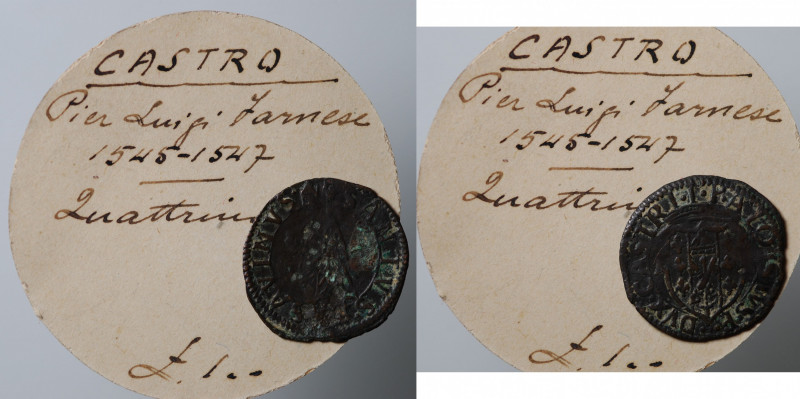 CASTRO
Pier Luigi Farnese
1545-1547
Quattrin
£.1..
CASTRO
Pier Luigi Farnese
1545-1547
Quattrin
£.1..